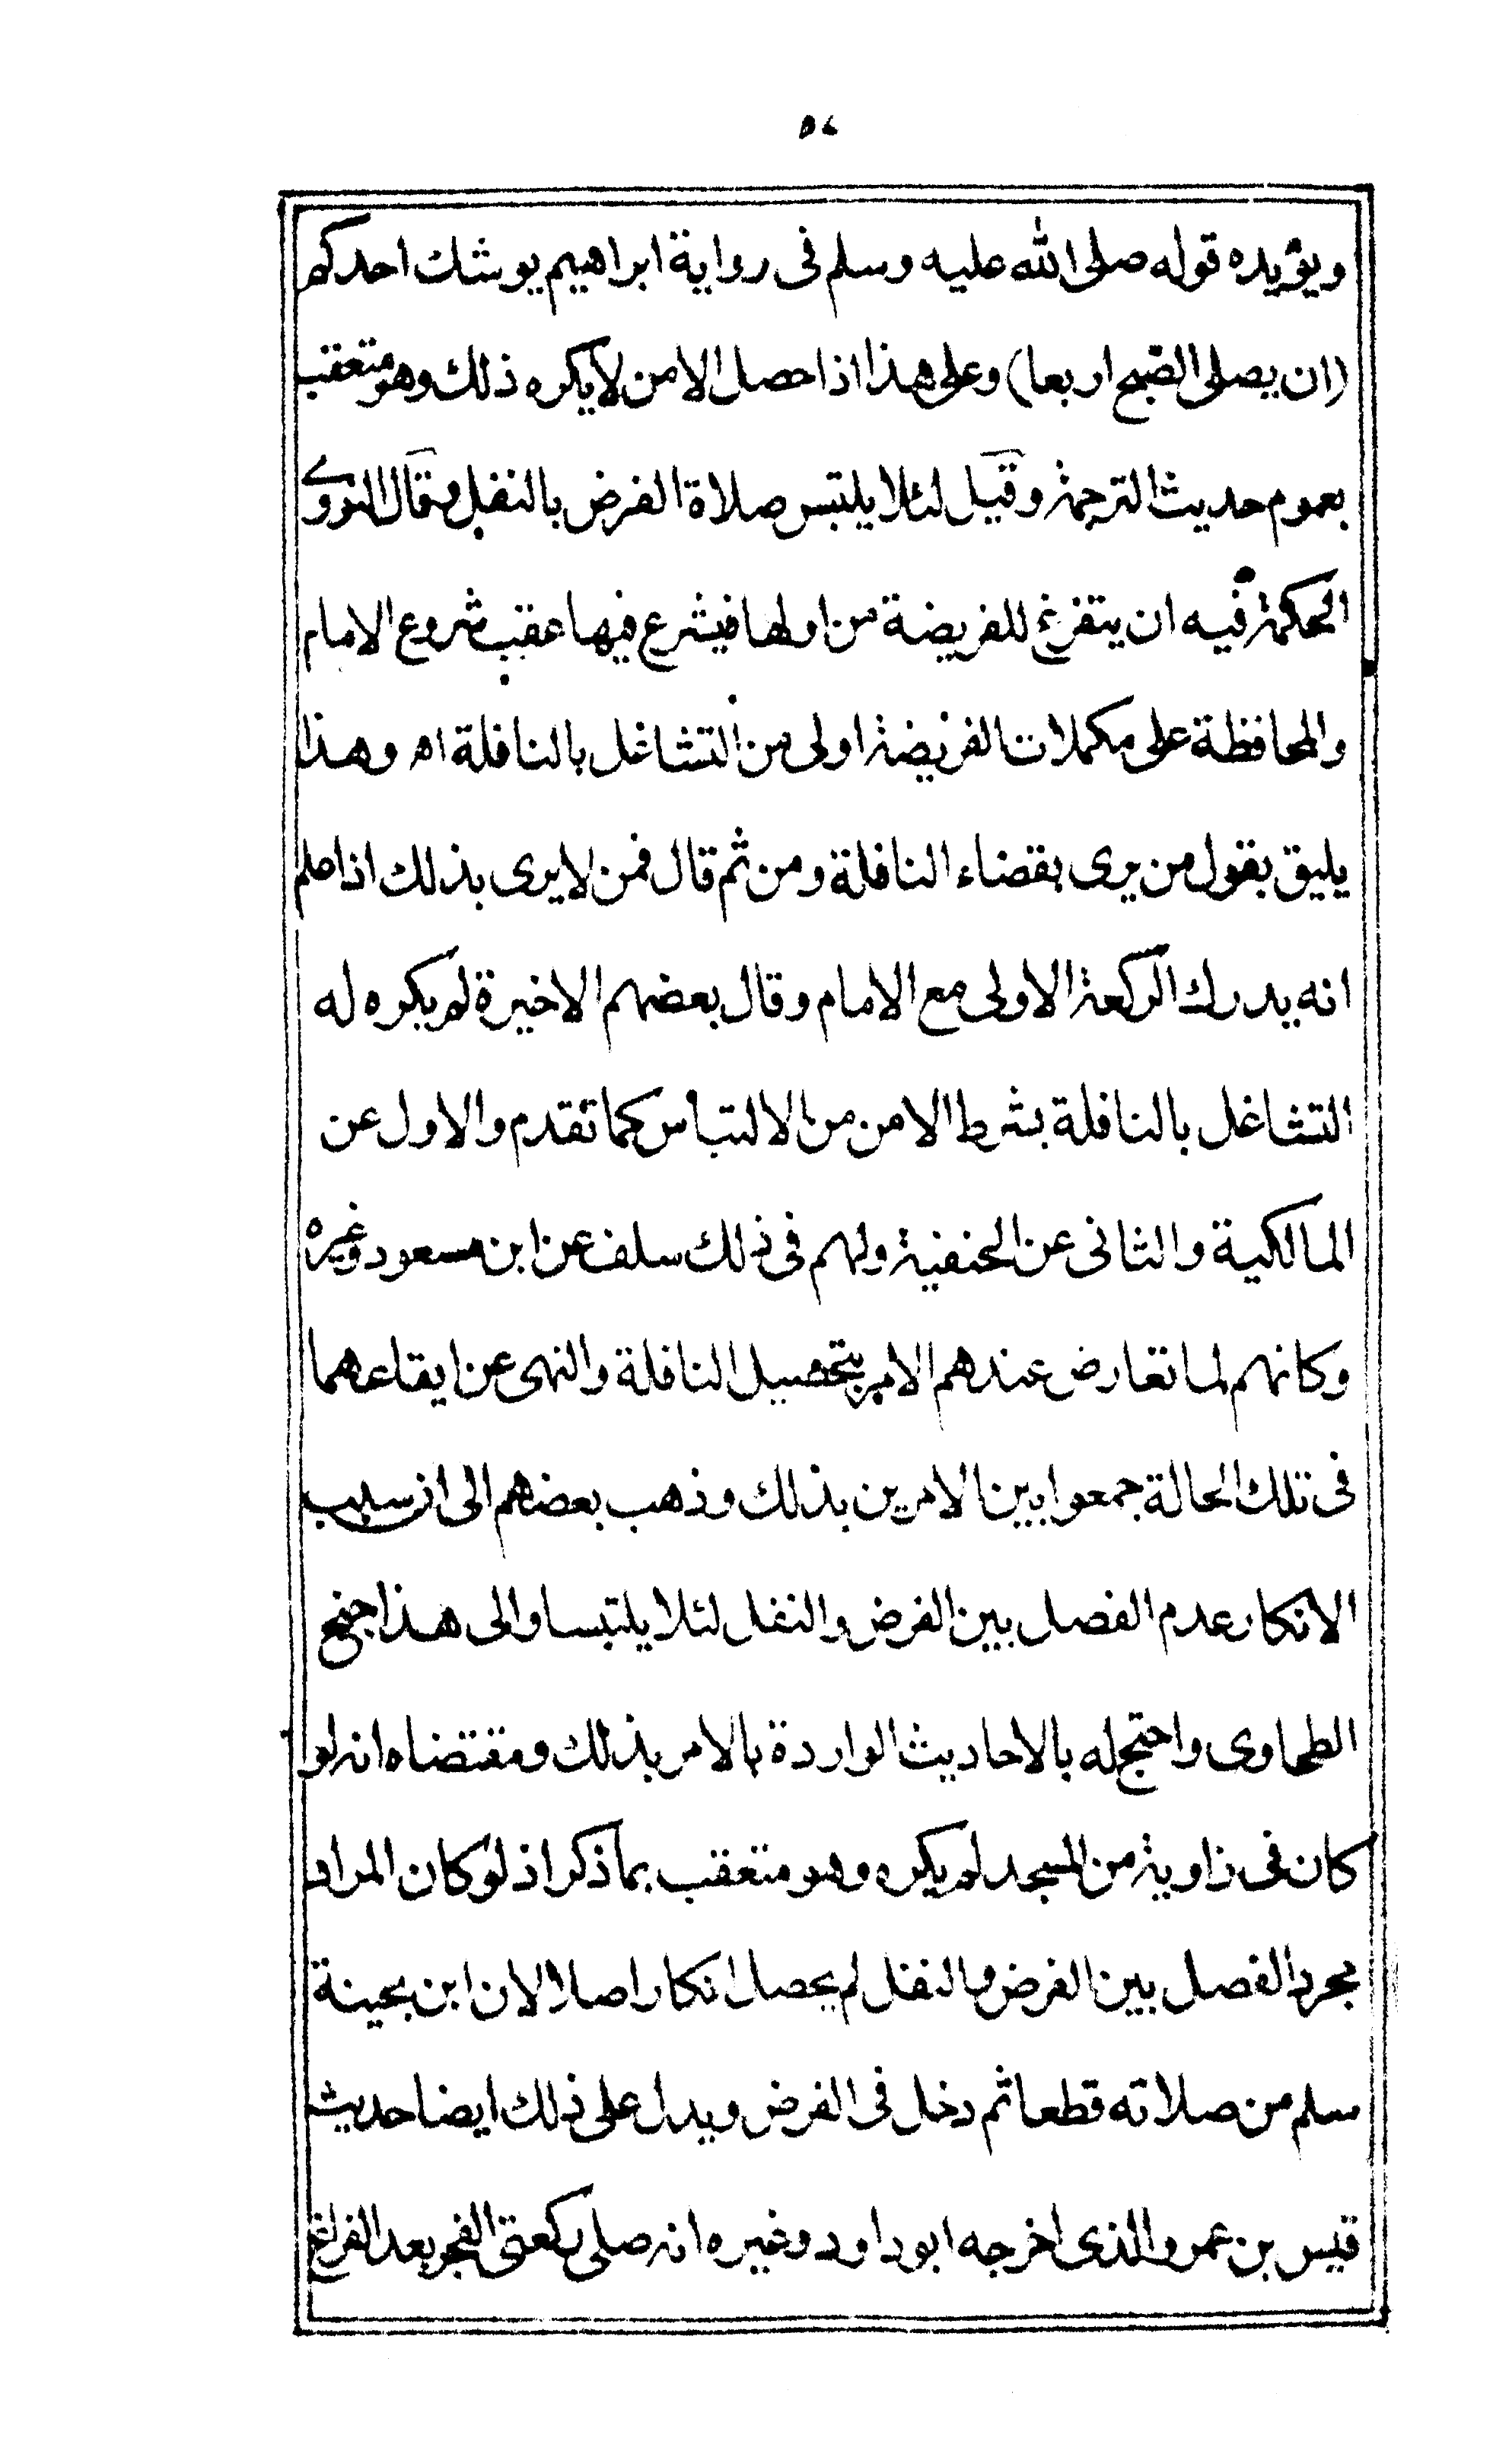 ويؤيده قوله صلى الله عليه وسلم فى رواية ابراهيم يوشك احدكم
(ان يصلى الصبح اربعا) وعلى هذا اذا حصل الامن لا يكره ذلك وهو متعقب
بعموم حديث الترجمة وقيل لئلا يلتبس صلاة الفرض بالنفل وقال النووى
الحكمة فيه ان يتفرغ للفريضة من اولها فيشرع فيها عقب شروع الامام
والمحافظة على مكملات الفريضة اولى من التشاغل بالنافلة اه وهذا
يليق بقول من يرى بقضاء النافلة ومن ثم قال فمن لا يرى بذلك اذا علم
انه يدرك الركعة الاولى مع الامام وقال بعضهم الاخيرة لم يكره له
التشاغل بالنافلة بشرط الامن من الالتباس كما تقدم والاول عن
المالكية والثانى عن الحنفية ولهم فى ذلك سلف عن ابن مسعود وغيره
وكانهم لما تعارض عندهم الامر بتحصيل النافلة والنهى عن ايقاعهما
فى تلك الحالة جمعوا بين الامرين بذلك وذهب بعضهم الى ان سبب
الانكار عدم الفصل بين الفرض والنفل لئلا يلتبسا والى هذا جنح
الطحاوى واحتج له بالاحاديث الواردة بالامر بذلك ومقتضاه انه لو
كان فى زاوية من المسجد لم يكره وهو متعقب بما ذكر اذ لو كان المراد
مجرد الفصل بين الفرض والنفل لم يحصل انكار اصلا لان ابن بحينة
سلم من صلاته قطعا ثم دخل فى الفرض ويدل على ذلك ايضا حديث
قيس بن عمرو الذى اخرجه ابو داود وغيره انه صلى ركعتى الفجر بعد الفراغ